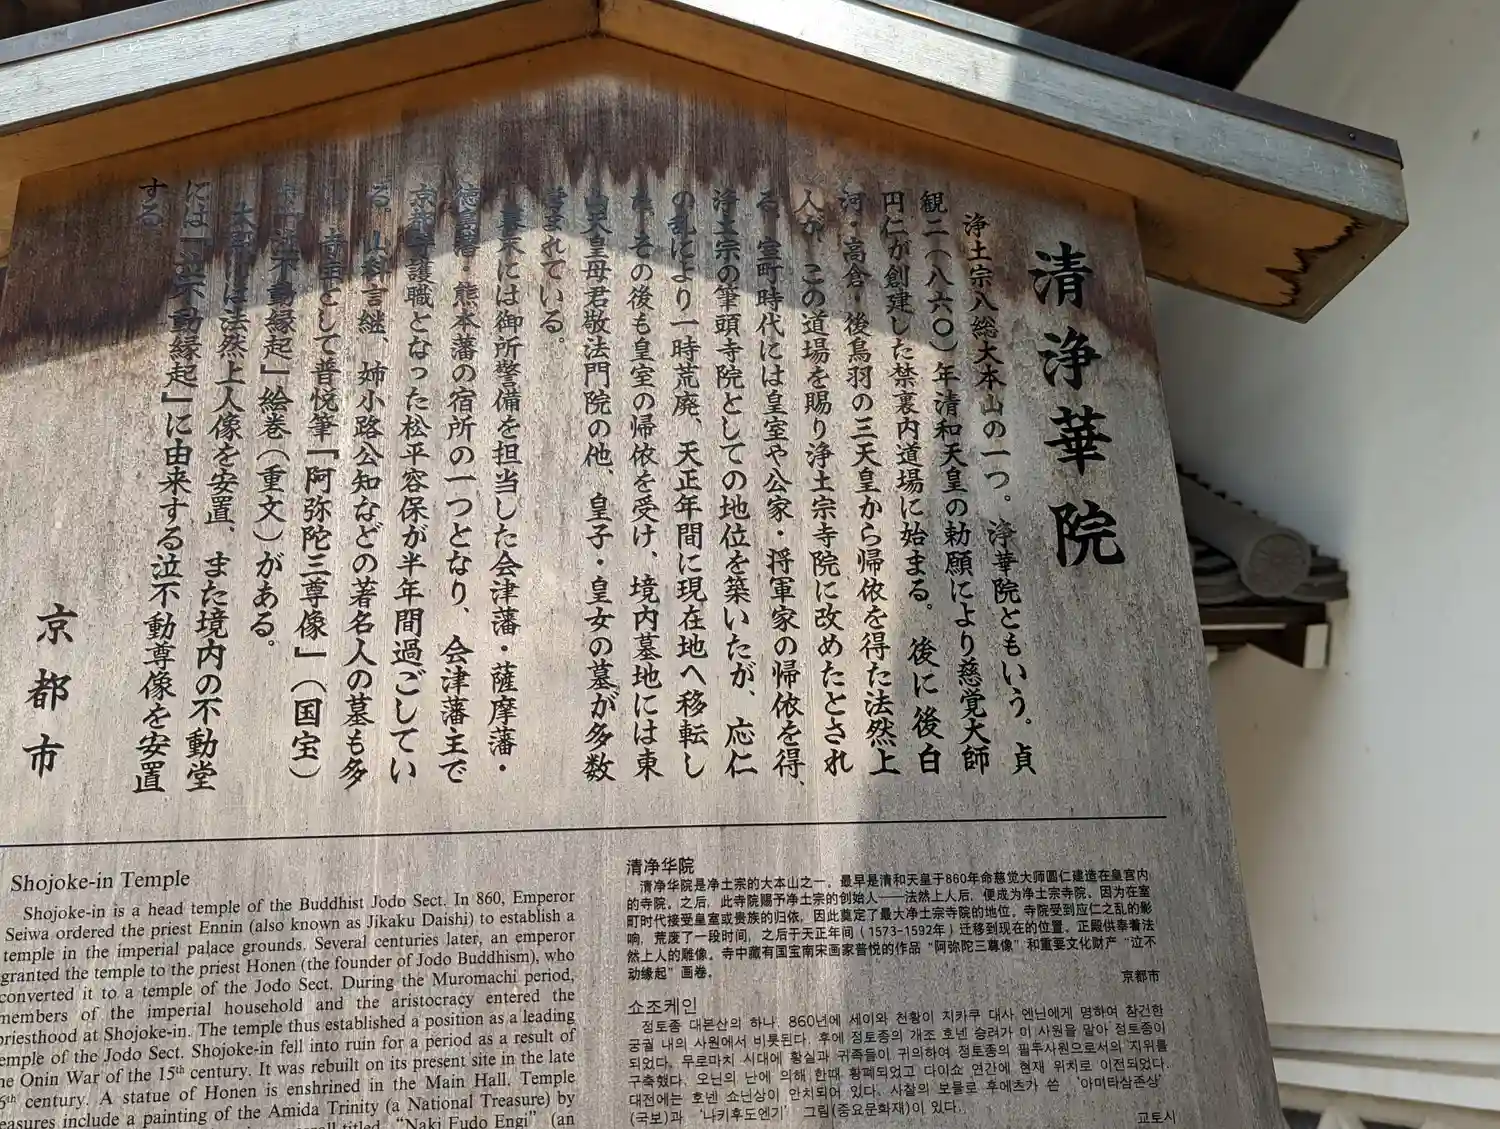 清浄華院
浄土宗八総大本山の一つ。浄華院ともいう。貞
観二(八六〇)年清和天皇の勅願により慈覚大師
円仁が創建した禁裏内道場に始まる。後に後白
河・高倉・後鳥羽の三天皇から帰依を得た法然上
人が、この道場を賜り浄土宗寺院に改めたとされ
る。室町時代には皇室や公家・将軍家の帰依を得、
浄土宗の筆頭寺院としての地位を築いたが、応仁
の乱により一時荒廃、天正年間に現在地へ移転し
た。その後も皇室の帰依を受け、境内墓地には東
山天皇母君敬法門院の他、皇子・皇女の墓が多数
営まれている。
幕末には御所警備を担当した会津藩・薩摩藩・
徳島藩・熊本藩の宿所の一つとなり、会津藩主で
京都守護職となった松平容保が半年間過ごしてい
る。山科言継、姉小路公知などの著名人の墓も多
寺宝として普悦筆「阿弥陀三尊像」(国宝)
泣不動縁起」絵巻(重文)がある。
は法然上人像を安置、また境内の不動堂
には「泣不動縁起」に由来する泣不動尊像を安置
する
京都市
Shojoke-in Temple
Shojoke-in is a head temple of the Buddhist Jodo Sect. In 860, Emperor
Seiwa ordered the priest Ennin (also known as Jikaku Daishi) to establish a
temple in the imperial palace grounds. Several centuries later, an emperor
granted the temple to the priest Honen (the founder of Jodo Buddhism), who
converted it to a temple of the Jodo Sect. During the Muromachi period,
members of the imperial household and the aristocracy entered the
priesthood at Shojoke-in. The temple thus established a position as a leading
temple of the Jodo Sect. Shojoke-in fell into ruin for a period as a result of
he Onin War of the 15th century. It was rebuilt on its present site in the late
6th century. A statue of Honen is enshrined in the Main Hall. Temple
easures include a painting of the Amida Trinity (a National Treasure) by
titled "Naki Fudo Engi" (an
清净华院
清净华院是净土宗的大本山之一。最早是清和天皇于860年命慈觉大师圆仁建造在皇宫内
的寺院。之后，此寺院赐予净土宗的创始人——法然上人后，便成为净土宗寺院。因为在室
町时代接受皇室或贵族的归依，因此奠定了最大净土宗寺院的地位。寺院受到应仁之乱的影
响，荒废了一段时间，之后于天正年间（1573-1592年）迁移到现在的位置。正殿供奉着法
然上人的雕像。寺中藏有国宝南宋画家普悦的作品“阿弥陀三尊像”和重要文化财产“泣不
动缘起”画卷。
京都市
쇼조케인
정토종 대본산의 하나. 860년에 세이와 천황이 지카쿠 대사 엔닌에게 명하여 창건한
궁궐 내의 사원에서 비롯된다. 후에 정토종의 개조 호넨 승려가 이 사원을 맡아 정토종이
되었다. 무로마치 시대에 황실과 귀족들이 귀의하여 정토종의 필두사원으로서의 지위를
구축했다. 오닌의 난에 의해 한때 황폐되었고 다이쇼 연간에 현재 위치로 이전되었다.
대전에는 호넨 쇼닌상이 안치되어 있다. 사찰의 보물로 후에츠가 쓴 '아미타삼존상'
(국보)과 '나키후도엔기' 그림(중요문화재)이 있다.
교토시